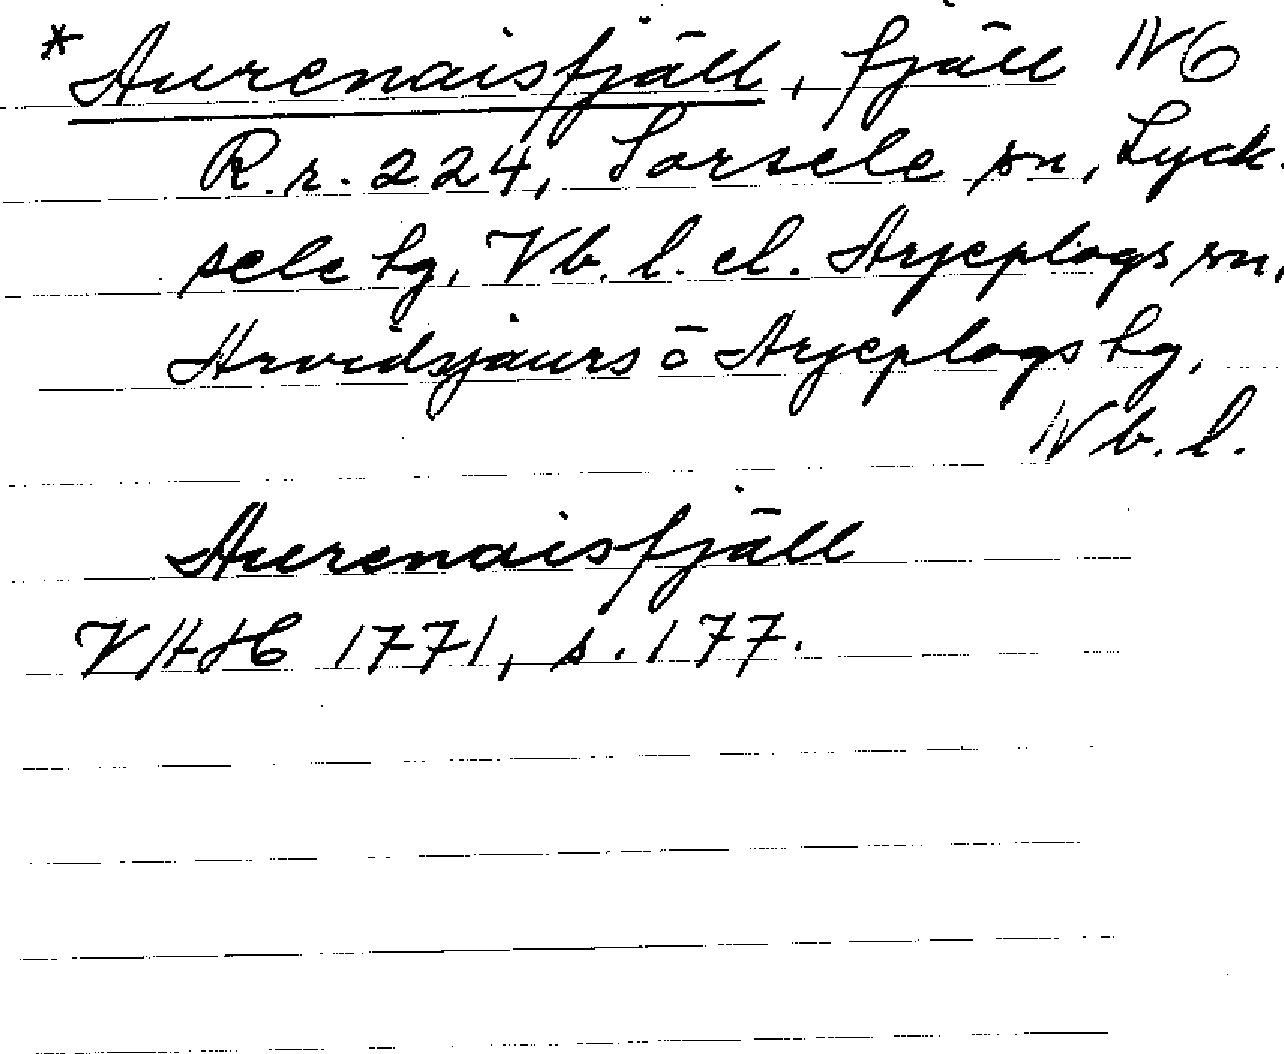 *Aurenaisfjäll, fjäll NO
R.r. 224, Sorsele sn, Lyck-
sele tg, Vb. l. el. Arjeplogs sn,
Arvidsjaurs o Arjeplogs tg,
Nb. l.
Aurenaisfjäll
VHAH 1771, s. 177.